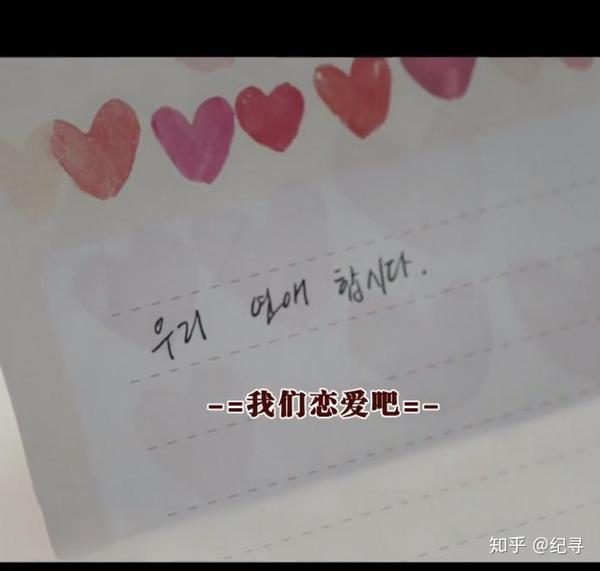 우리 연애 합시다.
-=我们恋爱吧=-
知乎 @纪寻